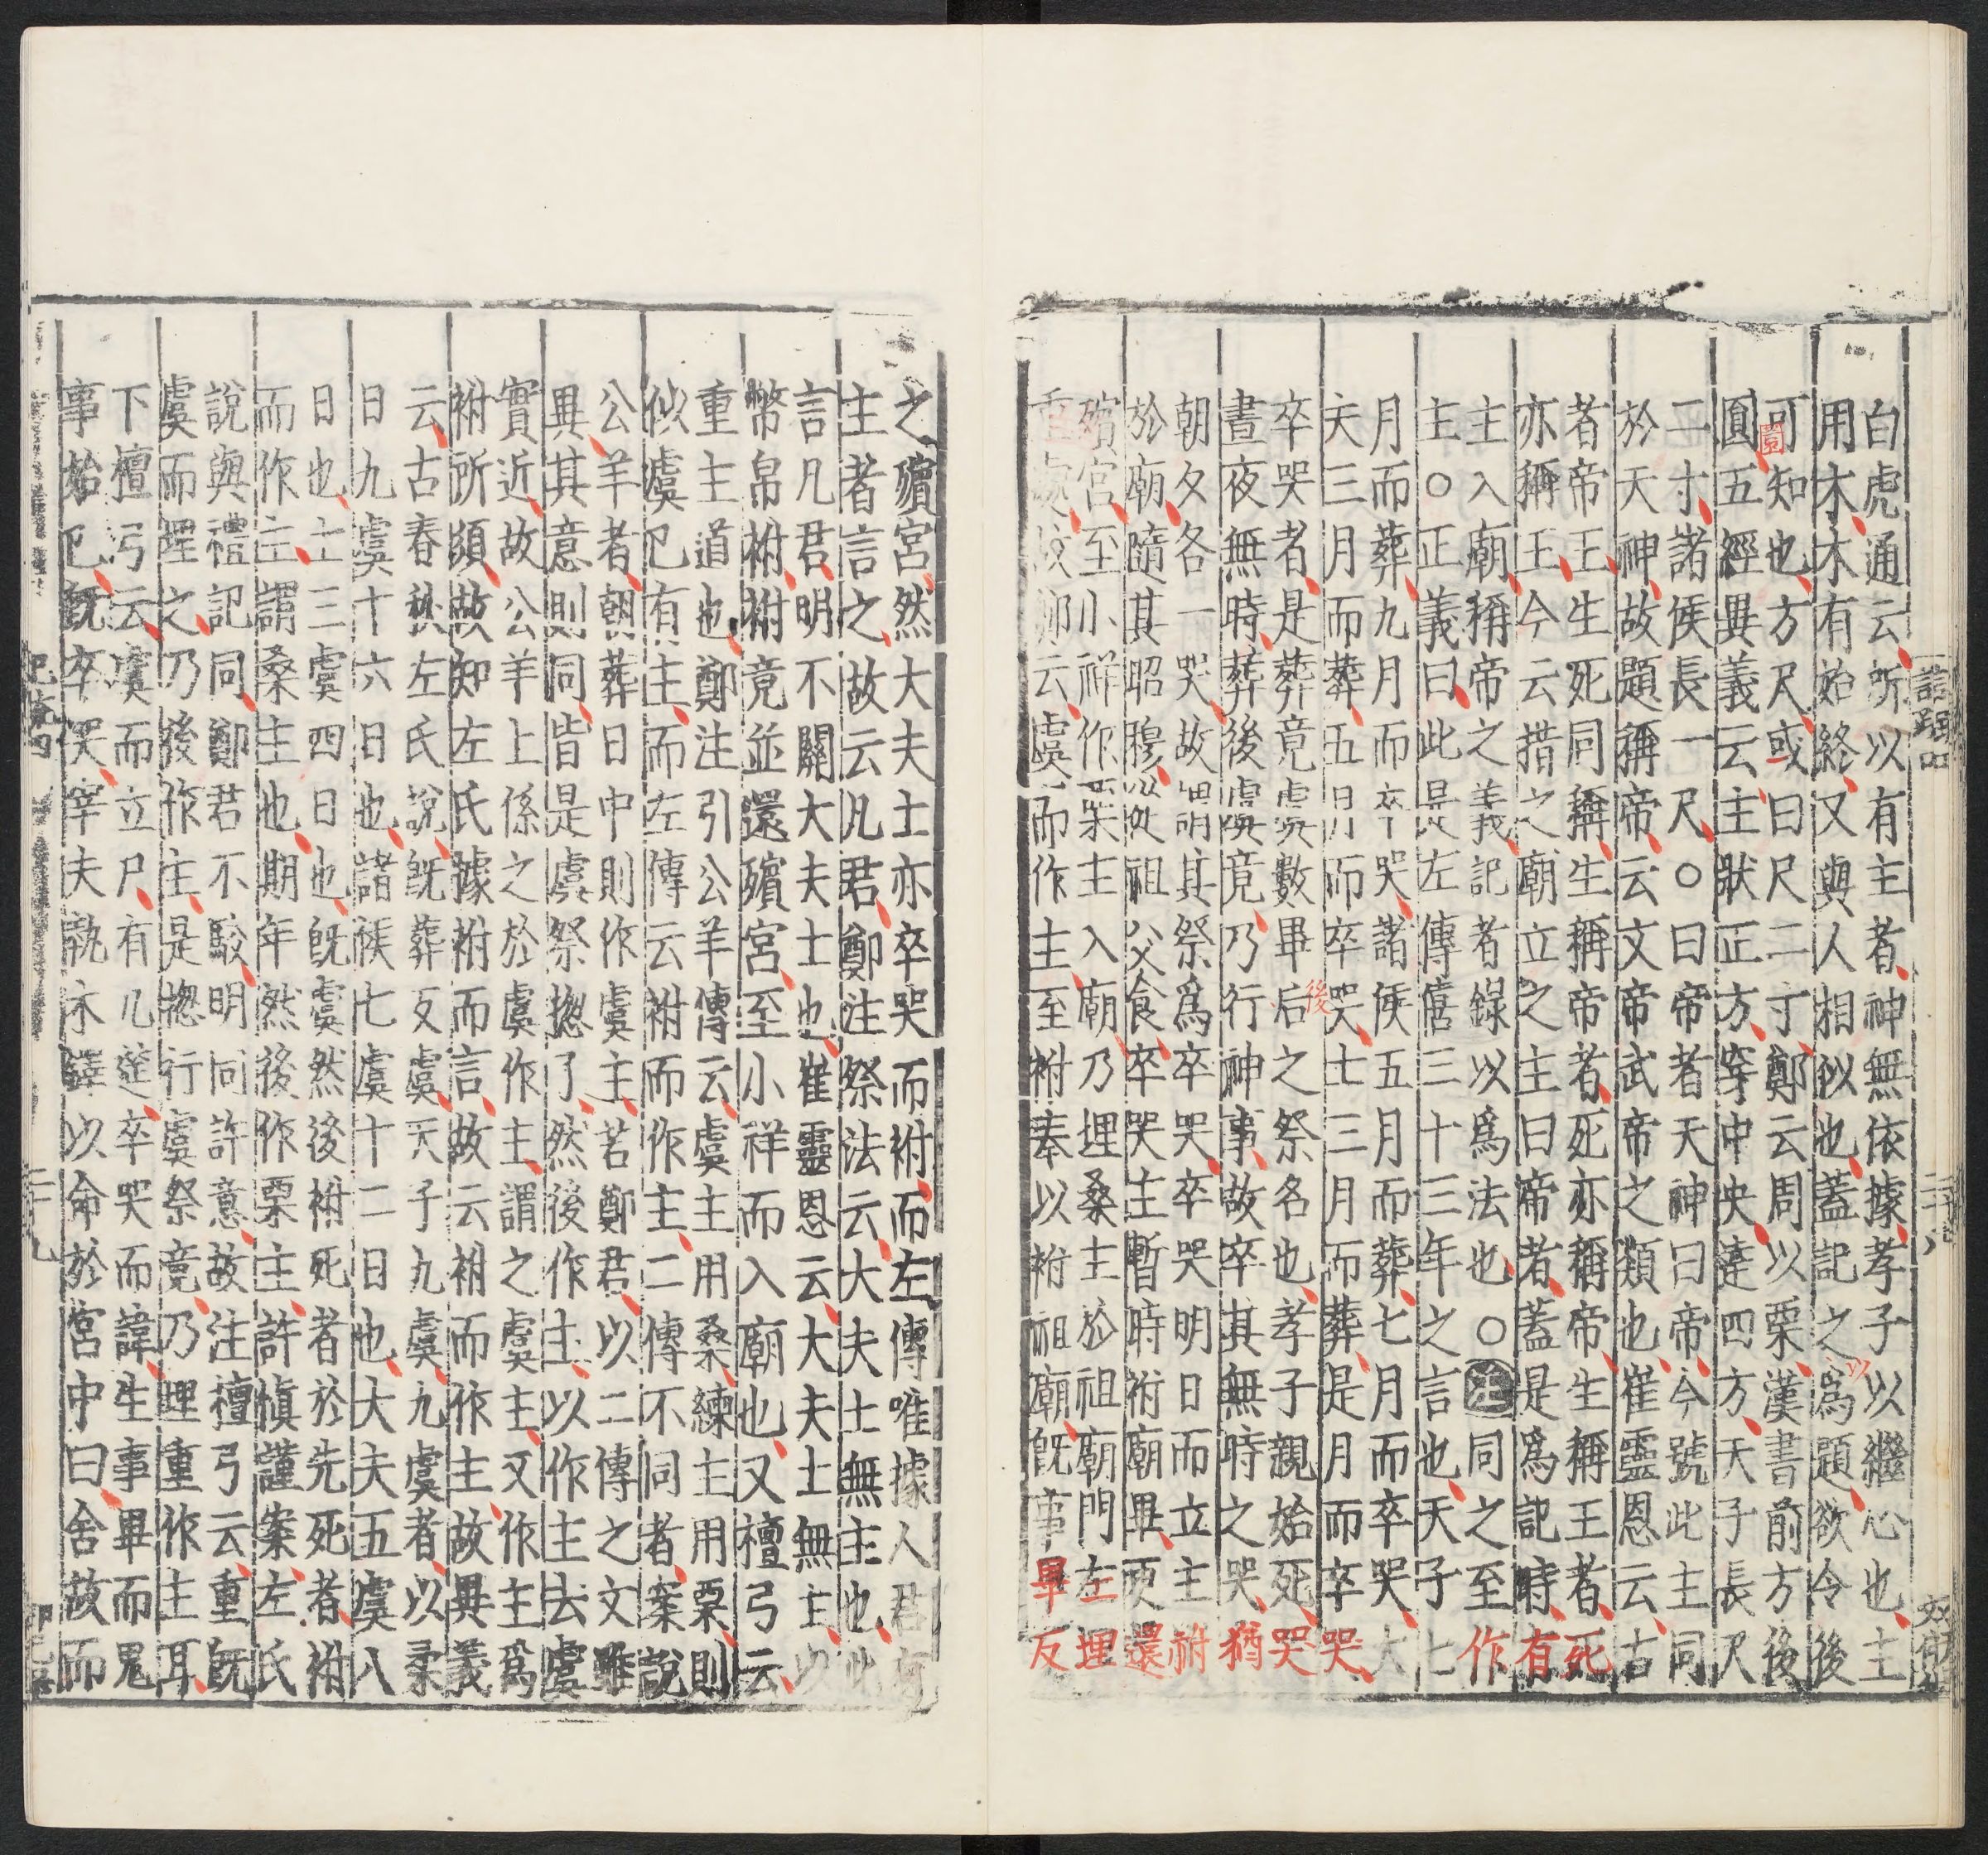 白虎通云所以有主者神無依據孝子以繼心也主
用木木有始終又與人相似也蓋記之為題欲令後
可知也方尺或曰尺二寸鄭云周以栗漢書前方後
圓五經異義云主狀正方穿中央達四方天子長尺
二寸諸侯長一尺〇曰帝者天神曰帝今號此主同
於天神故題稱帝云文帝武帝之類也崔靈恩云古
者帝王生死同稱生稱帝者死亦稱帝生稱王者死
亦稱王今云措之廟立之主曰帝者蓋是為記時有
主入廟稱帝之義記者錄以為法也〇注同之至作
主〇正義曰此是左傳僖三十三年之言也天子七
月而葬九月而卒哭諸侯五月而葬七月而卒哭大
夫三月而葬五月而卒哭士三月而葬是月而卒哭
卒哭者是葬竟虞數畢后之祭名也孝子親始死哭
晝夜無時葬後虞竟乃行神事故卒其無時之哭猶
朝夕各一哭故謂其祭為卒哭卒哭明日而立主祔
於廟隨其昭穆從祖父食卒哭主暫時祔廟畢更還
殯宮至小祥作栗主入廟乃埋桑主於祖廟門左埋
重處故鄭云虞而作主至祔奉以祔祖廟既事畢反
之殯宮然大夫士亦卒哭而祔而左傳唯據人君有
主者言之故云凡君鄭注祭法云大夫士無主也此
言凡君明不關大夫士也崔靈恩云大夫士無主以
幣帛祔祔竟並還殯宮至小祥而入廟也又檀弓云
重主道也鄭注引公羊傳云虞主用桑練主用栗則
似虞已有主而左傳云祔而作主二傳不同者案說
公羊者朝葬日中則作虞主若鄭君以二傳之文雖
異其意則同皆是虞祭揔了然後作主以作主去虞
實近故公羊上係之於虞作主謂之虞主又作主為
祔所須故知左氏據祔而言故云祔而作主故異義
云古春秋左氏說既葬反虞天子九虞九虞者以柔
日九虞十六日也諸侯七虞十二日也大夫五虞八
日也士三虞四日也既虞然後祔死者於先死者祔
而作主謂桑主也期年然後作栗主許慎謹案左氏
說與禮記同鄭君不駮明同許意故注檀弓云重既
虞而埋之乃後作主是揔行虞祭竟乃埋重作主耳
下檀弓云虞而立尸有几筵卒哭而諱生事畢而鬼
事始已既卒哭宰夫執木鐸以命於宮中曰舍故而